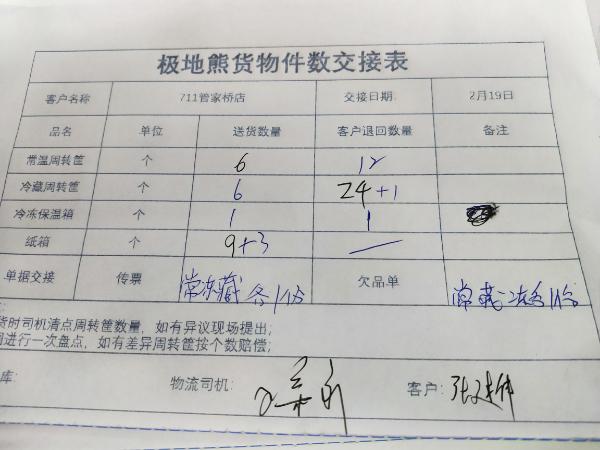 极地熊货物件数交接表
客户名称 711管家桥店 交接日期 2月19日
品名 单位 送货数量 客户退回数量 备注
常温周转筐 个 6 12
冷藏周转筐 个 6 24+1
冷冻保温箱 个 1 1
纸箱 个 9+3 —
单据交接 传票 常冻藏各1份 欠品单 常藏冻各1份
货时司机清点周转筐数量，如有异议现场提出；
周进行一次盘点，如有差异周转筐按个数赔偿；
库： 物流司机： 客户：